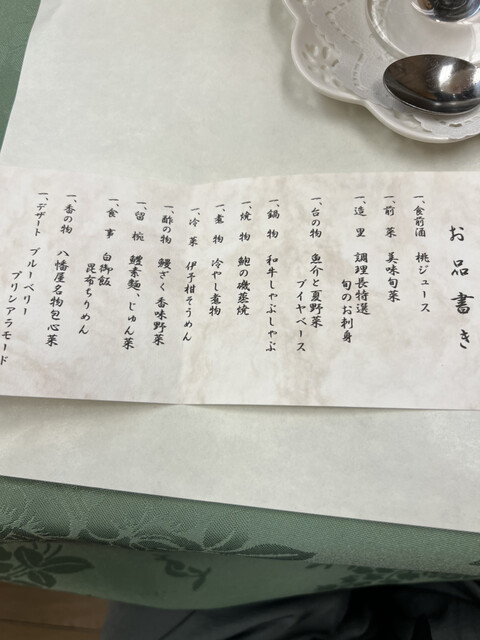 お品書き
一、食前酒 桃ジュース
一、前菜 美味旬菜
一、造里 調理長特選
旬のお刺身
一、台の物 魚介と夏野菜
ブイヤベース
一、鍋物 和牛しゃぶしゃぶ
一、焼物 鮑の磯蒸焼
一、煮物 冷やし煮物
一、冷菜 伊予柑そうめん
一、酢の物 鰻ざく 香味野菜
一、留椀 鱧素麺、じゅん菜
一、食事 白御飯
昆布ちりめん
一、香の物 八幡屋名物包心菜
一、デザート ブルーベリー
プリンアラモード